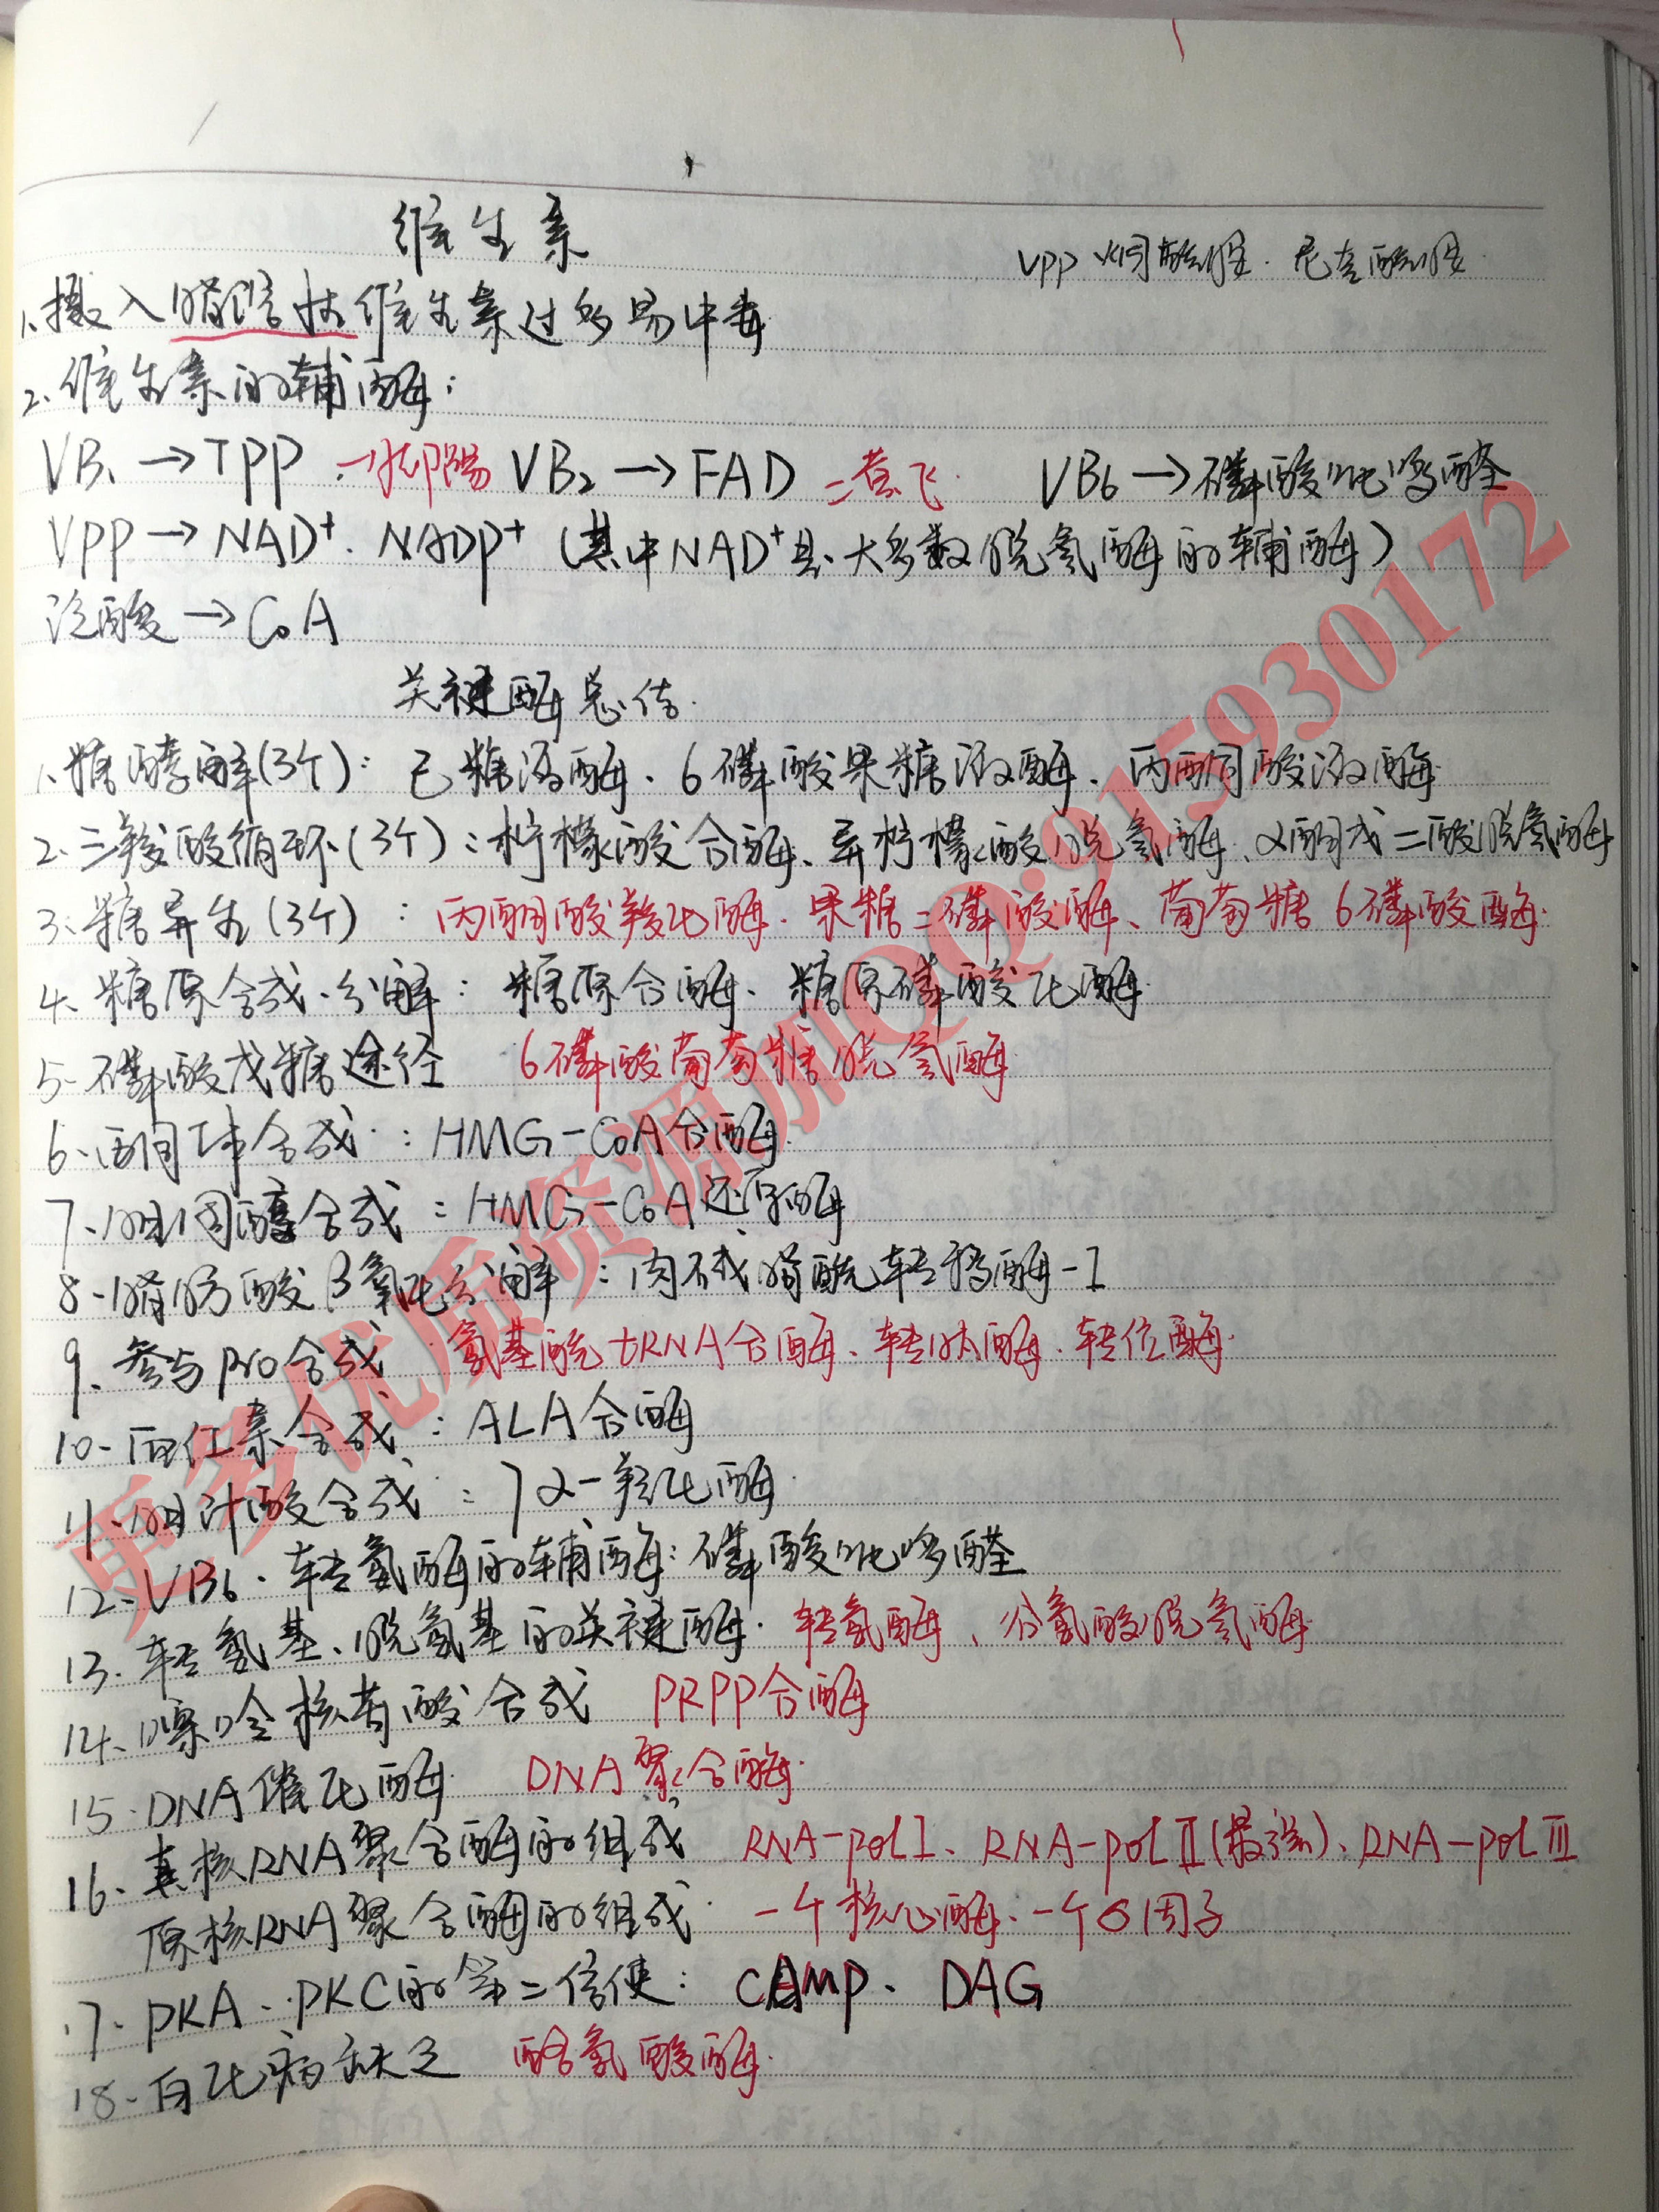 维生素
VPP 烟酰胺. 尼克酰胺.
1. 摄入脂溶性维生素过多易中毒
2. 维生素的辅酶:
VB₁→TPP 一抬脚踢 VB₂→FAD 二煮飞. VB₆→磷酸吡哆醛
VPP→NAD⁺. NADP⁺ (其中NAD⁺是大多数脱氢酶的辅酶)
泛酸→CoA
关键酶总结.
1. 糖酵解(3个): 己糖激酶、6磷酸果糖激酶、丙酮酸激酶
2. 三羧酸循环(3个): 柠檬酸合酶、异柠檬酸脱氢酶、α酮戊二酸脱氢酶
3. 糖异生(3个): 丙酮酸羧化酶. 果糖二磷酸酶、葡萄糖6磷酸酶.
4. 糖原合成、分解: 糖原合酶、糖原磷酸化酶.
5. 磷酸戊糖途径 6磷酸葡萄糖脱氢酶.
6. 酮体合成: HMG-CoA合酶.
7. 胆固醇合成: HMG-CoA还原酶
8. 脂肪酸β氧化分解: 肉碱脂酰转移酶-I
9. 参与pro合成 氨基酰tRNA合酶、转肽酶. 转位酶.
10. 血红素合成: ALA合酶
11. 胆汁酸合成: 7α-羟化酶.
12. VB₆. 转氨酶的辅酶: 磷酸吡哆醛
13. 转氨基、脱氨基的关键酶. 转氨酶、谷氨酸脱氢酶.
14. 嘌呤核苷酸合成 PRPP合酶
15. DNA催化酶 DNA聚合酶.
16. 真核RNA聚合酶的组成 RNA-pol I、RNA-pol II(最活)、RNA-pol III
原核RNA聚合酶的组成. 一个核心酶. 一个σ因子
17. PKA、PKC的第二信使: cAMP、DAG
18. 白化病缺乏 酪氨酸酶.
更多优质资源加QQ:915930172